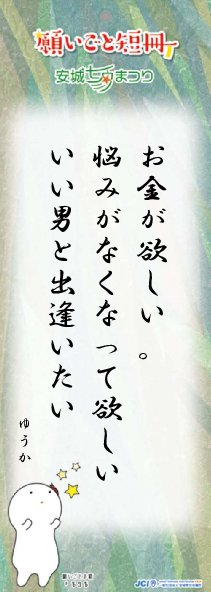 願いごと短冊
安城七夕まつり
お金が欲しい。
悩みがなくなって欲しい
いい男と出逢いたい
ゆうか
JCI